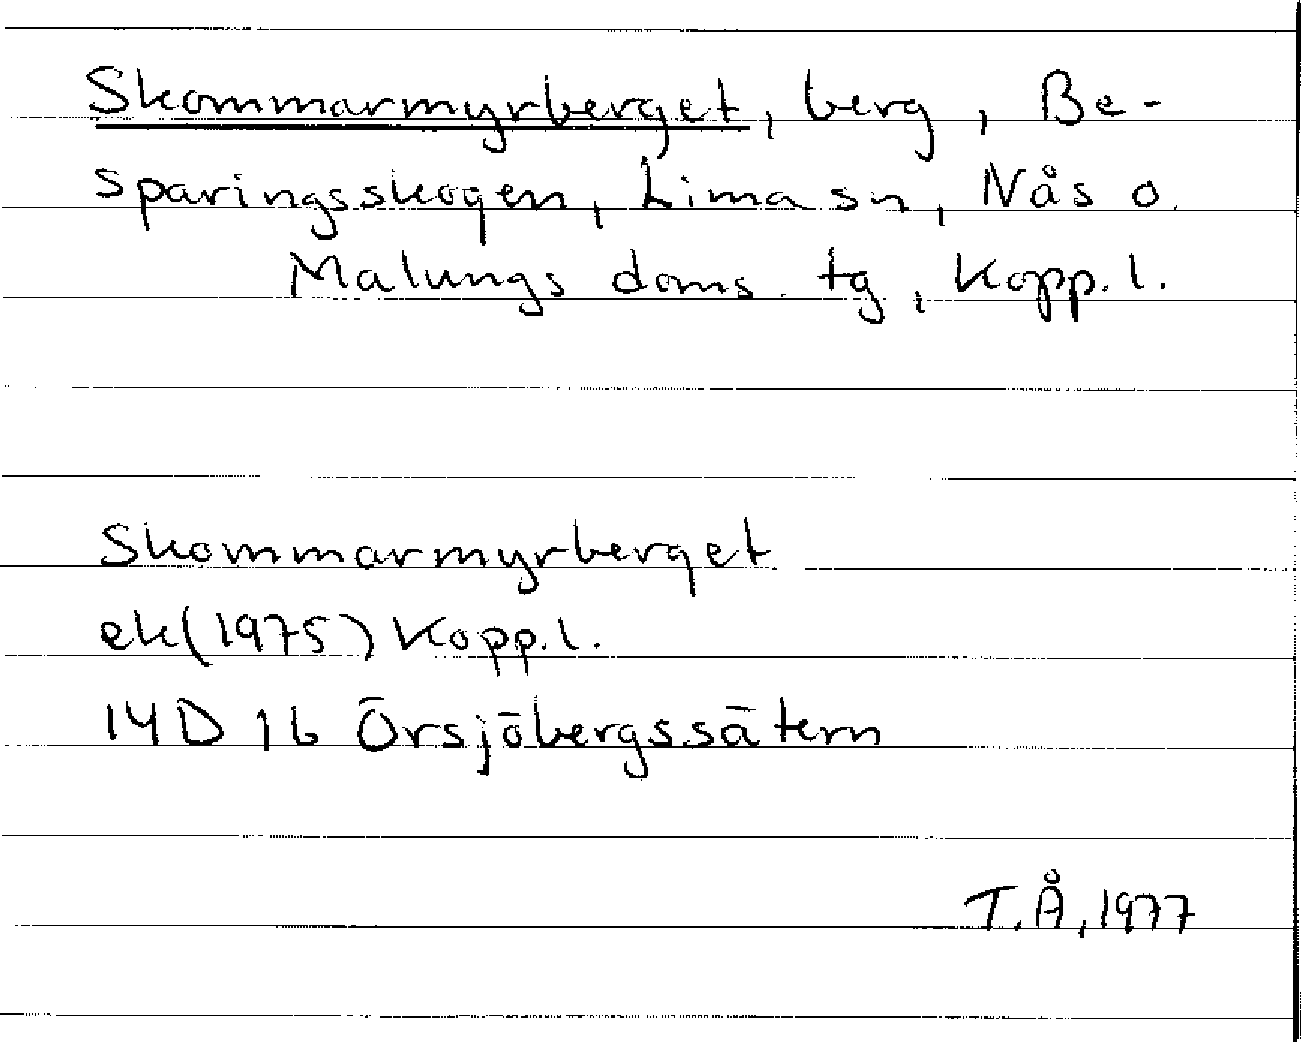 Skommarmyrberget, berg, Be-
sparingsskogen, Lima sn, Nås o.
Malungs doms. tg, Kopp. l.
Skommarmyrberget
ek(1975) Kopp. l.
14D 1b Örsjöbergssätern
T.Å, 1977